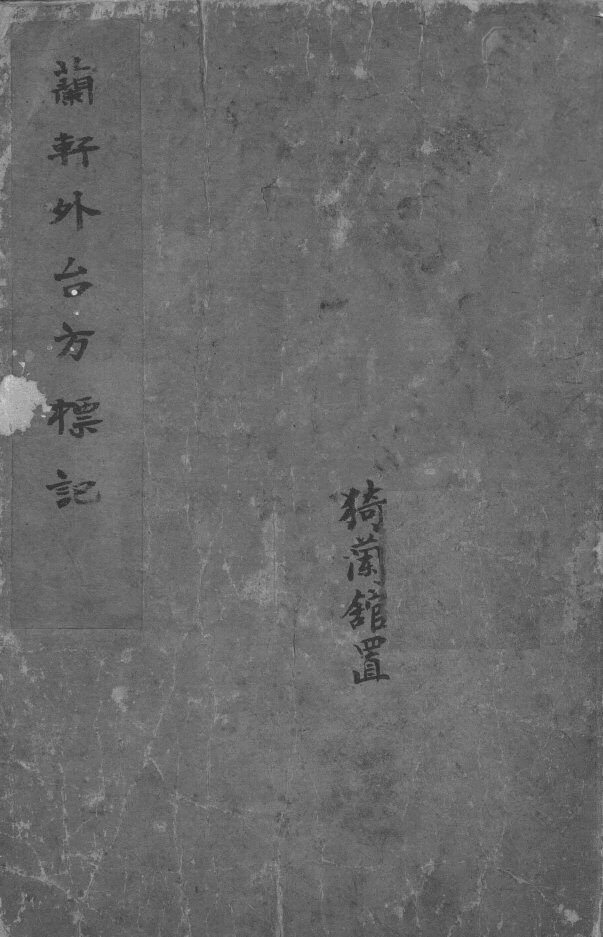 蘭軒外台方標記
猗蘭舘置